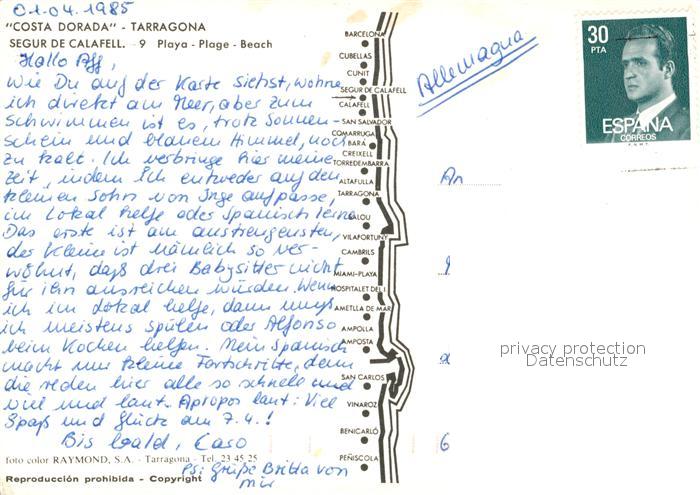 01.04.1985
"COSTA DORADA" - TARRAGONA
SEGUR DE CALAFELL. - 9 Playa - Plage - Beach
Hallo Aff,
Wie Du auf der Karte siehst, wohne
ich direkt am Meer, aber zum
Schwimmen ist es, trotz Sonnen-
schein und blauem Himmel, noch
zu kalt. Ich verbringe hier meine
Zeit, indem ich entweder auf den
kleinen Sohn von Inge aufpasse,
im Lokal helfe oder Spanisch lerne.
Das erste ist am anstrengensten,
der Kleine ist nämlich so ver-
wöhnt, daß drei Babysitter nicht
für ihn ausreichen würden. Wenn
ich im Lokal helfe, dann muß
ich meistens spülen oder Alfonso
beim Kochen helfen. Mein Spanisch
macht nur kleine Fortschritte, denn
die reden hier alle so schnell und
viel und laut. Apropos laut: Viel
Spaß und Glück am 7.4.!
Bis bald, Caro
PS: Grüße Britta von
mir
foto color RAYMOND, S.A. - Tarragona - Tel. 23 45 25
Reproducción prohibida - Copyright
BARCELONA
CUBELLAS
CUNIT
SEGUR DE CALAFELL
CALAFELL
SAN SALVADOR
COMARRUGA
BARÁ
CREIXELL
TORREDEMBARRA
ALTAFULLA
TARRAGONA
SALOU
VILAFORTUNY
CAMBRILS
MIAMI-PLAYA
HOSPITALET DEL I.
AMETLLA DE MAR
AMPOLLA
AMPOSTA
SAN CARLOS
VINAROZ
BENICARLÓ
PEÑISCOLA
Allemagna
30
PTA
ESPAÑA
CORREOS
F.N.M.T.
An
privacy protection
Datenschutz
6